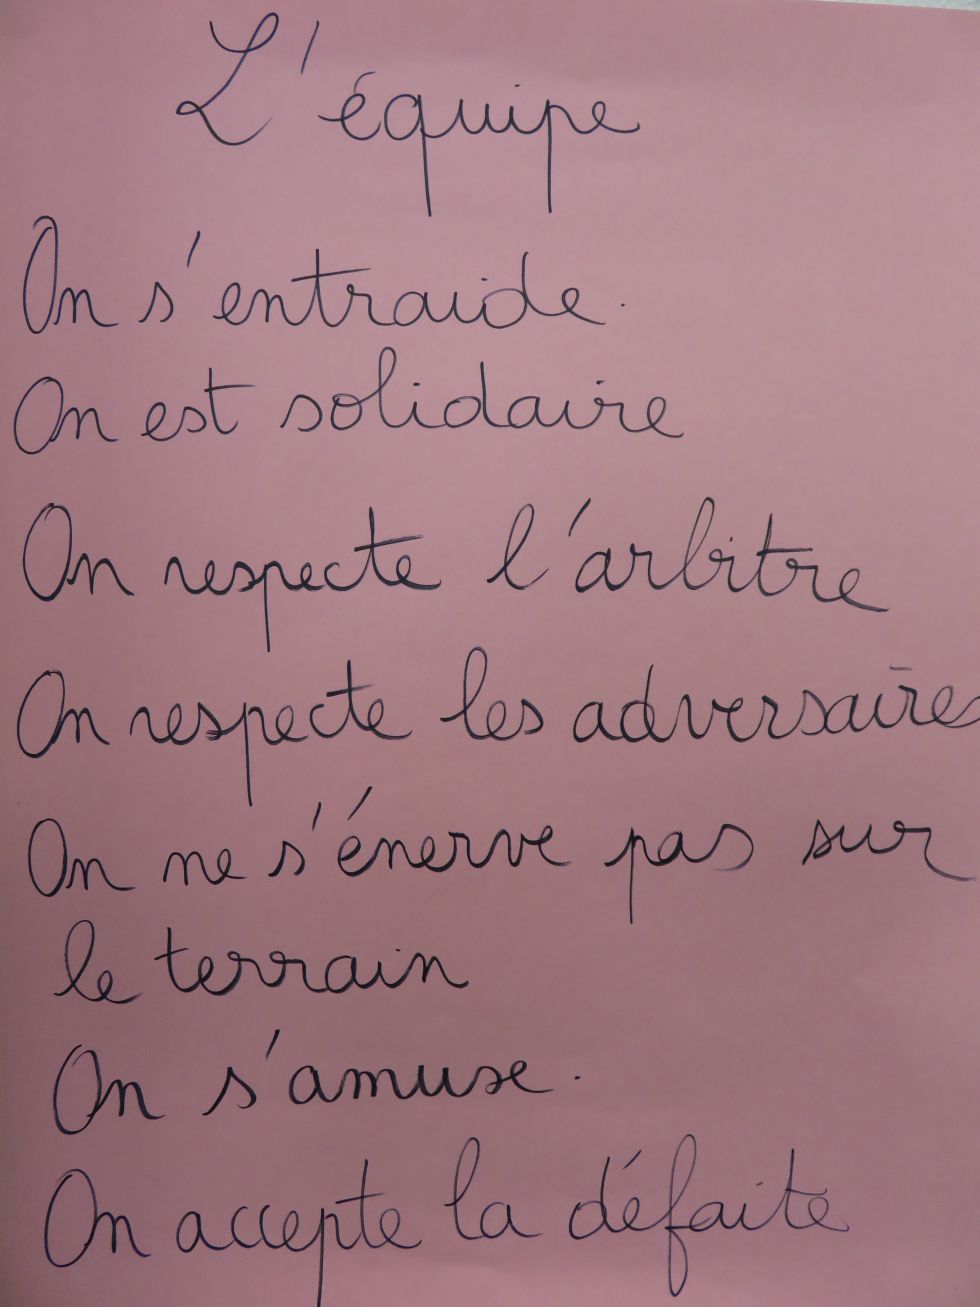 L'équipe
On s'entraide.
On est solidaire
On respecte l'arbitre
On respecte les adversaires
On ne s'énerve pas sur
le terrain
On s'amuse.
On accepte la défaite